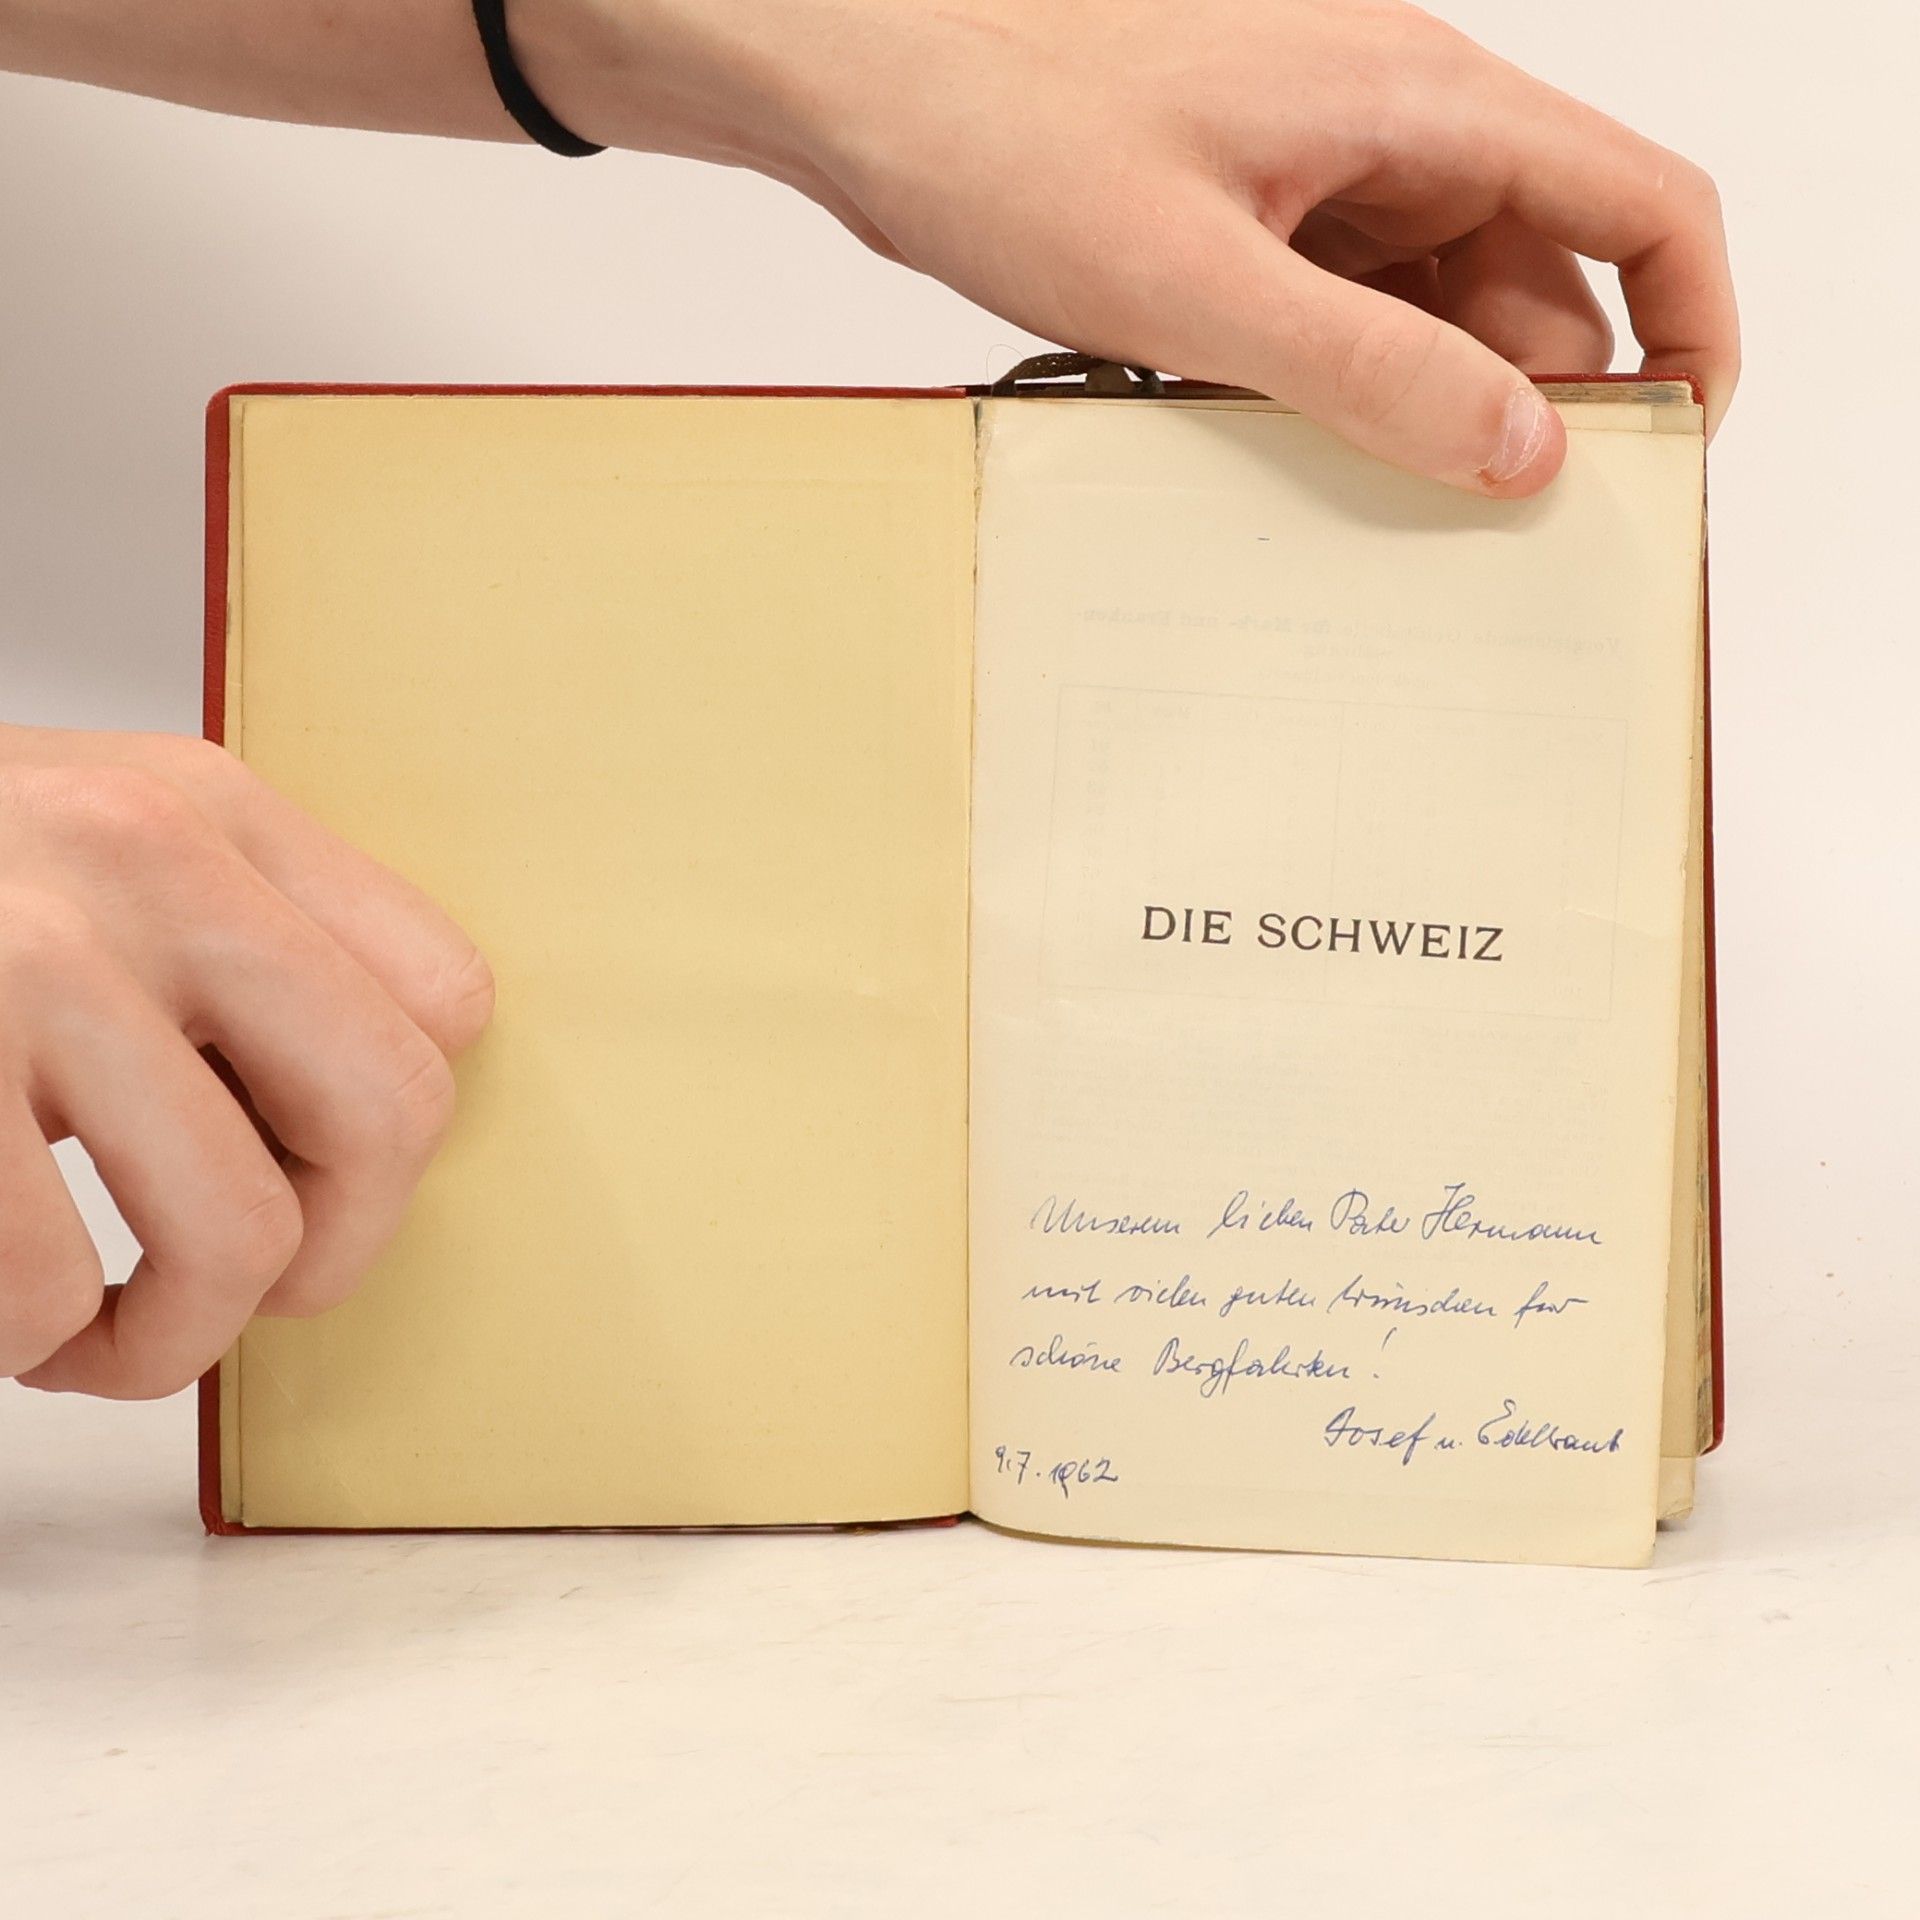 DIE SCHWEIZ
Unserem lieben Pater Hermann
mit vielen guten Wünschen für
schöne Bergfahrten!
Josef u. Edeltraut
9.7.1962